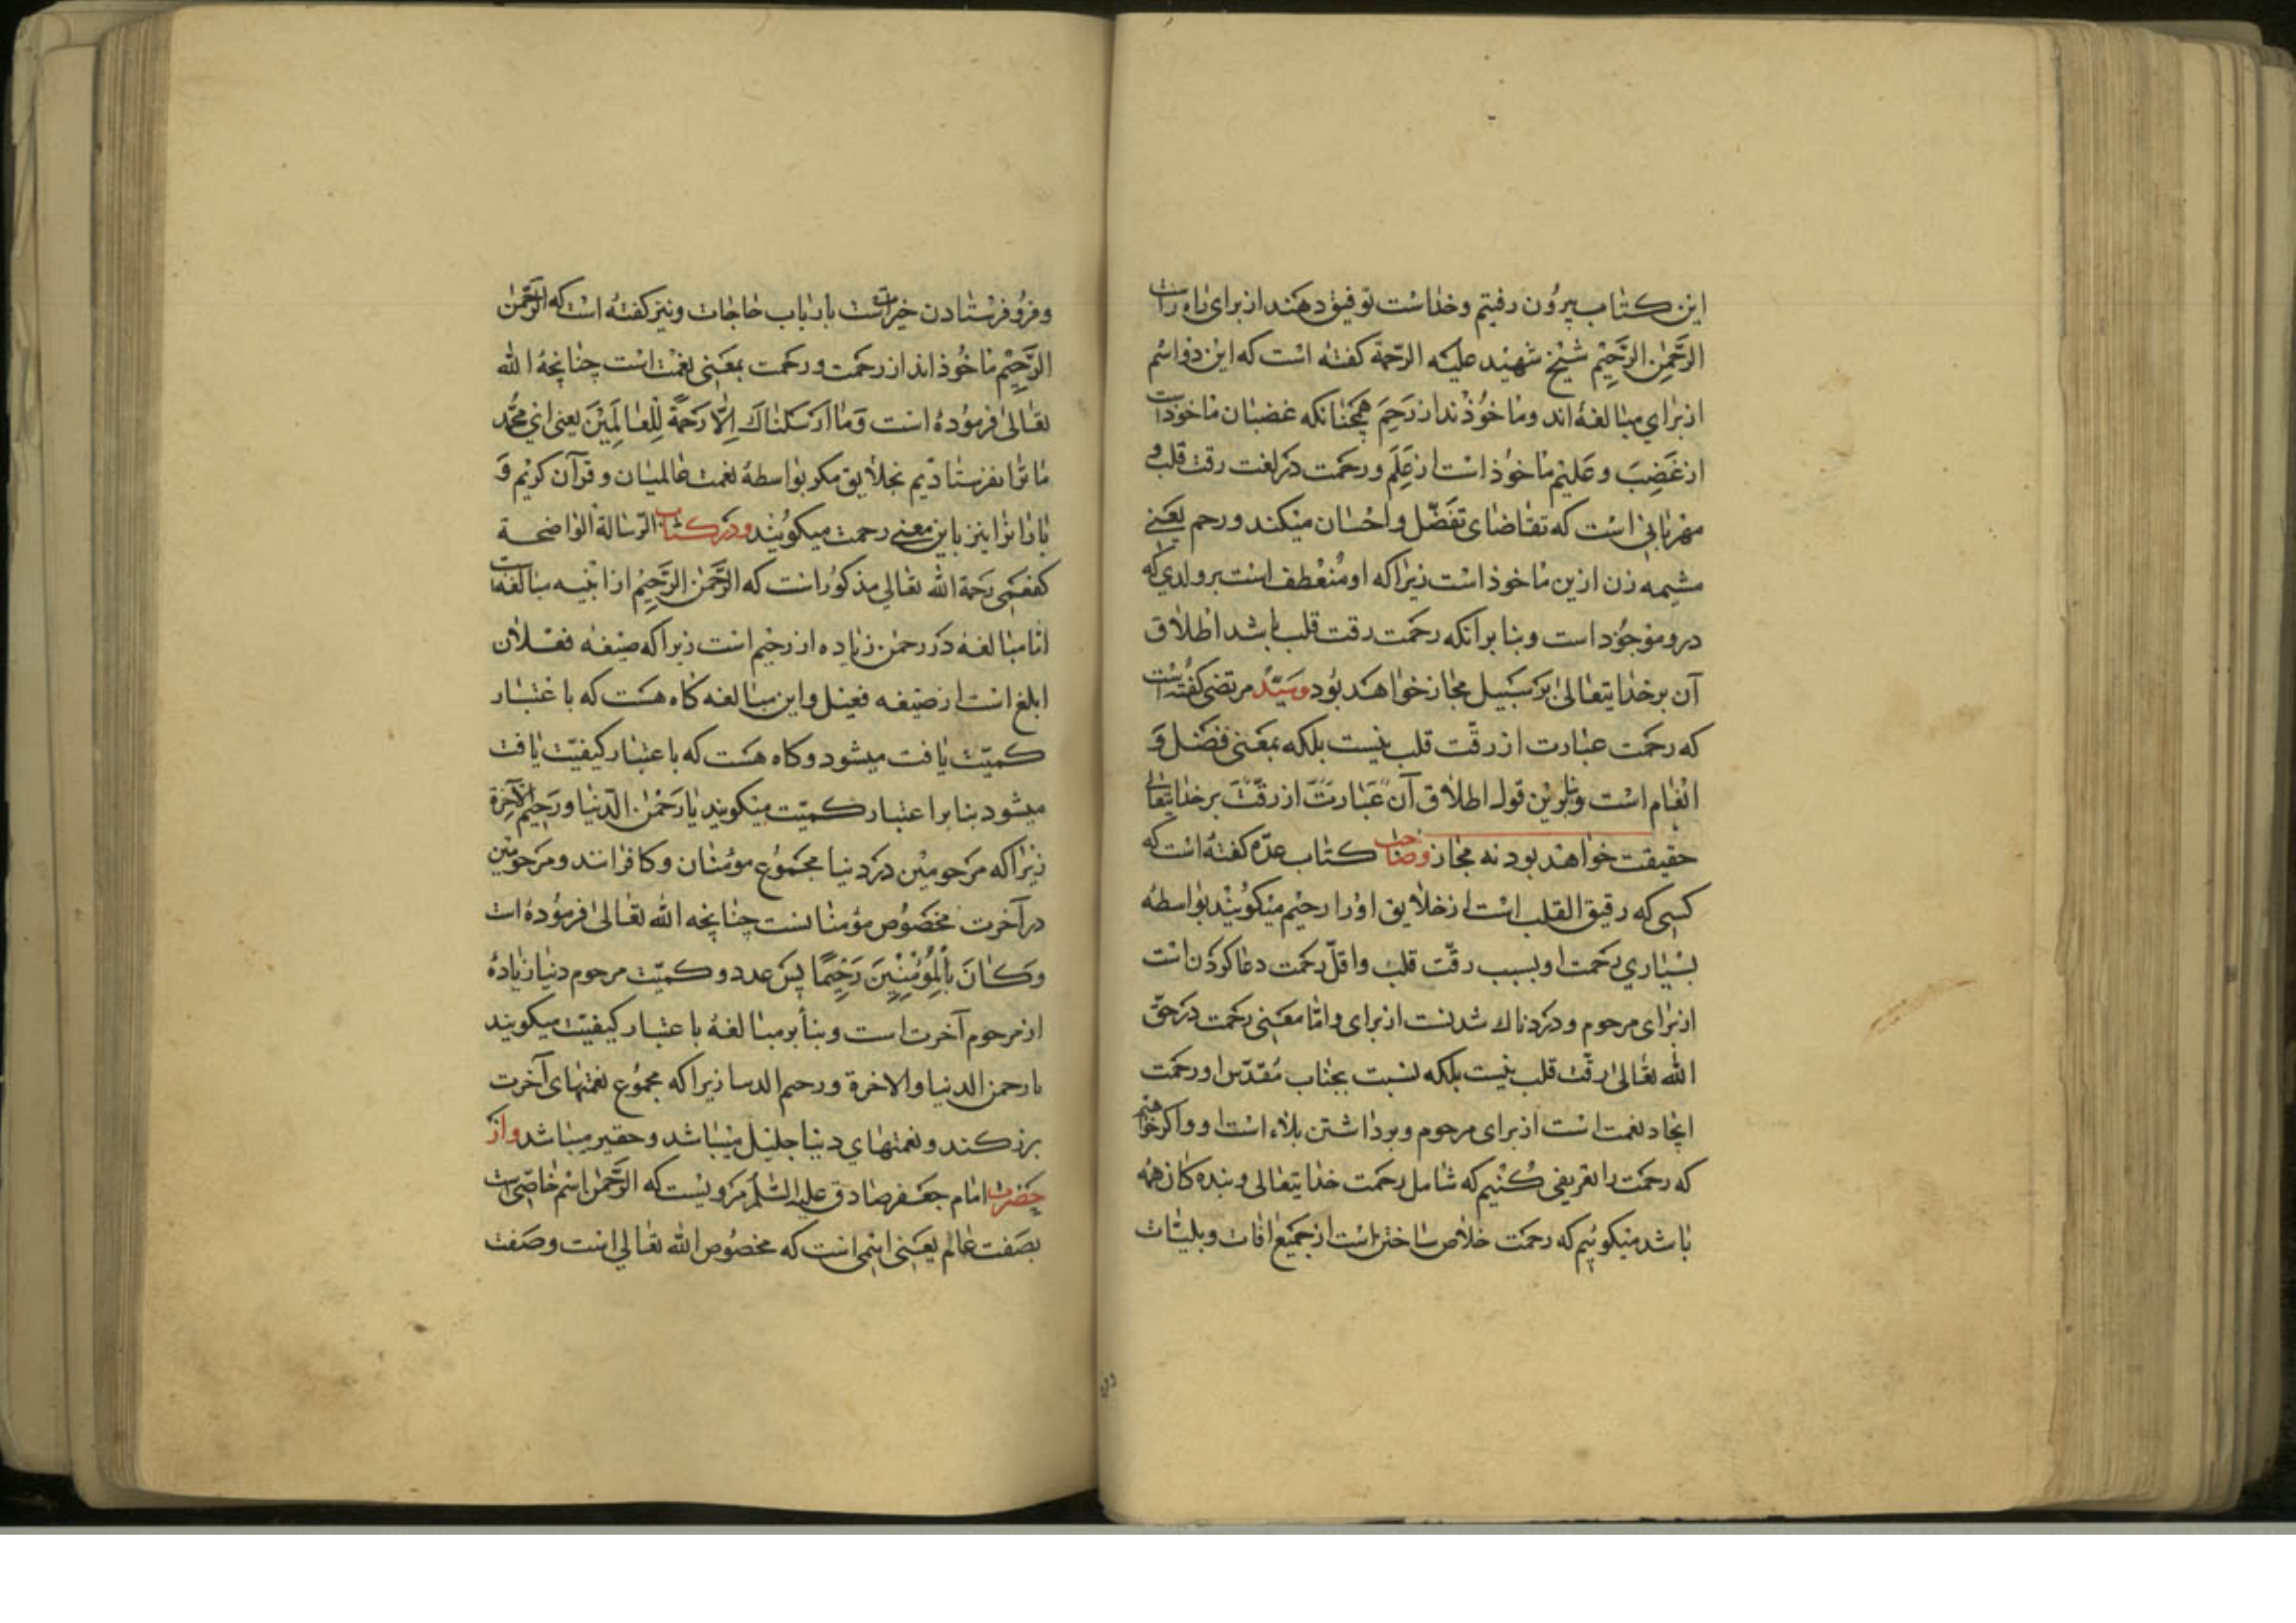 این کتاب بیرون رفتیم و خداست توفیق دهند از برای راه راست
الرَّحْمٰنِ الرَّحِیْمِ شیخ شهید علیه الرحمة کفته است که این دو اسم
از برای مبالغهٔ اند و ماخوذند از رَحِمَ همچنانکه غضبان ماخوذ است
از غَضِبَ و علیم ماخوذ است از عَلِمَ و رحمت در لغت رقت قلب و
مهربانی است که تقاضای تفضّل و احسان میکند و رحم یعنی
مشیمه زن ازین ماخوذ است زیرا که او منعطف است بر ولدی که
درو موجود است و بنا بر انکه رحمت رقت قلب باشد اطلاق
آن بر خدایتعالی بر سبیل مجاز خواهد بود و سیّد مرتضی کفته است
که رحمت عبارت از رقّت قلب نیست بلکه بمعنی فضل و
انعام است و برین قول اطلاق آن عبارت از رقّت بر خدایتعالی
حقیقت خواهد بود نه مجاز و صاحب کتاب عدّه کفته است که
کسی که رقیق القلب است از خلایق اورا رحیم میکویند بواسطه
بسیاری رحمت او بسبب رقّت قلب و اقلّ رحمت دعا کردن است
از برای مرحوم و دردناک شدنست از برای و امّا معنی رحمت در حقّ
الله تعالی رقّت قلب نیست بلکه نسبت بجناب مقدّس او رحمت
ایجاد نعمت است از برای مرحوم و برداشتن بلاء است او و اکر خواهیم
که رحمت را تعریفی کنیم که شامل رحمت خدایتعالی و بنده کان همه
باشد میکوئیم که رحمت خلاص ساختن است از جمیع افات و بلیّات
و فرو فرستادن خیرات است بارباب حاجات و نیز کفته است که الرّحمن
الرَّحِیْمِ ماخوذ اند از رحمت و رحمت بمعنی نعمت است چنانچه الله
تعالی فرموده است وَمَا اَرْسَلْنَاکَ اِلَّا رَحْمَةً لِلْعَالَمِیْنَ یعنی ای محمّد
ما ترا نفرستادیم بخلایق مکر بواسطهٔ نعمت عالمیان و قرآن کریم و
بارانرا نیز باین معنی رحمت میکویند و در کتاب الرّسالة الواضحة
کفعمی رحمة الله تعالی مذکور است که الرَّحْمٰن الرَّحِیْمُ از ابنیه مبالغه است
امّا مبالغه در رحمن زیاده از رحیم است زیرا که صیغه فعلان
ابلغ است از صیغه فعیل و این مبالغه کاه هست که باعتبار
کمیّت یافت میشود و کاه هست که باعتبار کیفیّت یافت
میشود بنا بر اعتبار کمیّت میکویند یا رَحْمٰن الدّنیا و رَحیم الآخرة
زیرا که مرحومین در دنیا مجموع مؤمنان و کافرانند و مرحومین
در آخرت مخصوص مؤمنانست چنانچه الله تعالی فرموده است
وَکَانَ بِالْمُؤْمِنِیْنَ رَحِیْمًا پس عدد و کمیّت مرحوم دنیا زیاده
از مرحوم آخرت است و بنا بر مبالغهٔ باعتبار کیفیّت میکویند
یا رحمن الدنیا والاخرة و رحیم الدنیا زیرا که مجموع نعمتهای آخرت
بزرکند و نعمتهای دنیا جلیل میباشد و حقیر میباشد و از
حضرت امام جعفر صادق علیه السّلام مرویست که الرَّحْمٰن اسم خاصّی است
بصفت عالم یعنی اسمی است که مخصوص الله تعالی است و صفت